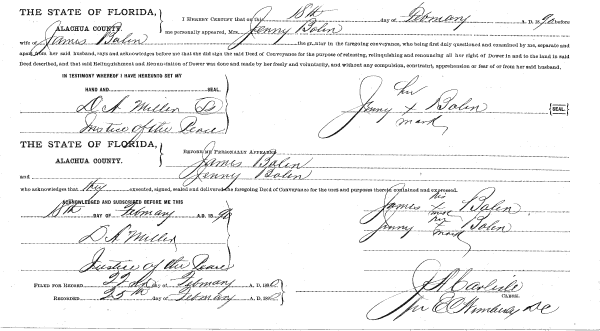 THE STATE OF FLORIDA,
ALACHUA COUNTY.
I HEREBY CERTIFY that on this 18th day of February A. D. 1890 before
me personally appeared, Mrs. Jenny Bolin
wife of James Bolin the grantor in the foregoing conveyance, who being first duly questioned and examined by me, separate and
apart from her said husband, says and acknowledges before me that she did sign the said Deed of Conveyance for the purpose of releasing, relinquishing and renouncing all her right of Dower in and to the land in said
Deed described, and that said Relinquishment and Renunciation of Dower was done and made by her freely and voluntarily, and without any compulsion, constraint, apprehension or fear of or from her said husband.
IN TESTIMONY WHEREOF I HAVE HEREUNTO SET MY
HAND AND SEAL.
D A Miller
Justice of the Peace
her
Jenny x Bolin
mark
SEAL
THE STATE OF FLORIDA,
ALACHUA COUNTY.
BEFORE ME PERSONALLY APPEARED
James Bolin
and Jenny Bolin
who acknowledges that they executed, signed, sealed and delivered the foregoing Deed of Conveyance for the uses and purposes therein contained and expressed.
ACKNOWLEDGED AND SUBSCRIBED BEFORE ME THIS
18th DAY OF February A.D. 1890
D A Miller
Justice of the Peace
his
James x Bolin
mark
her
Jenny x Bolin
mark
FILED FOR RECORD day of February A. D. 1890
RECORDED 25th day of February A. D. 1890
Carlisle
CLERK.
per E C DC